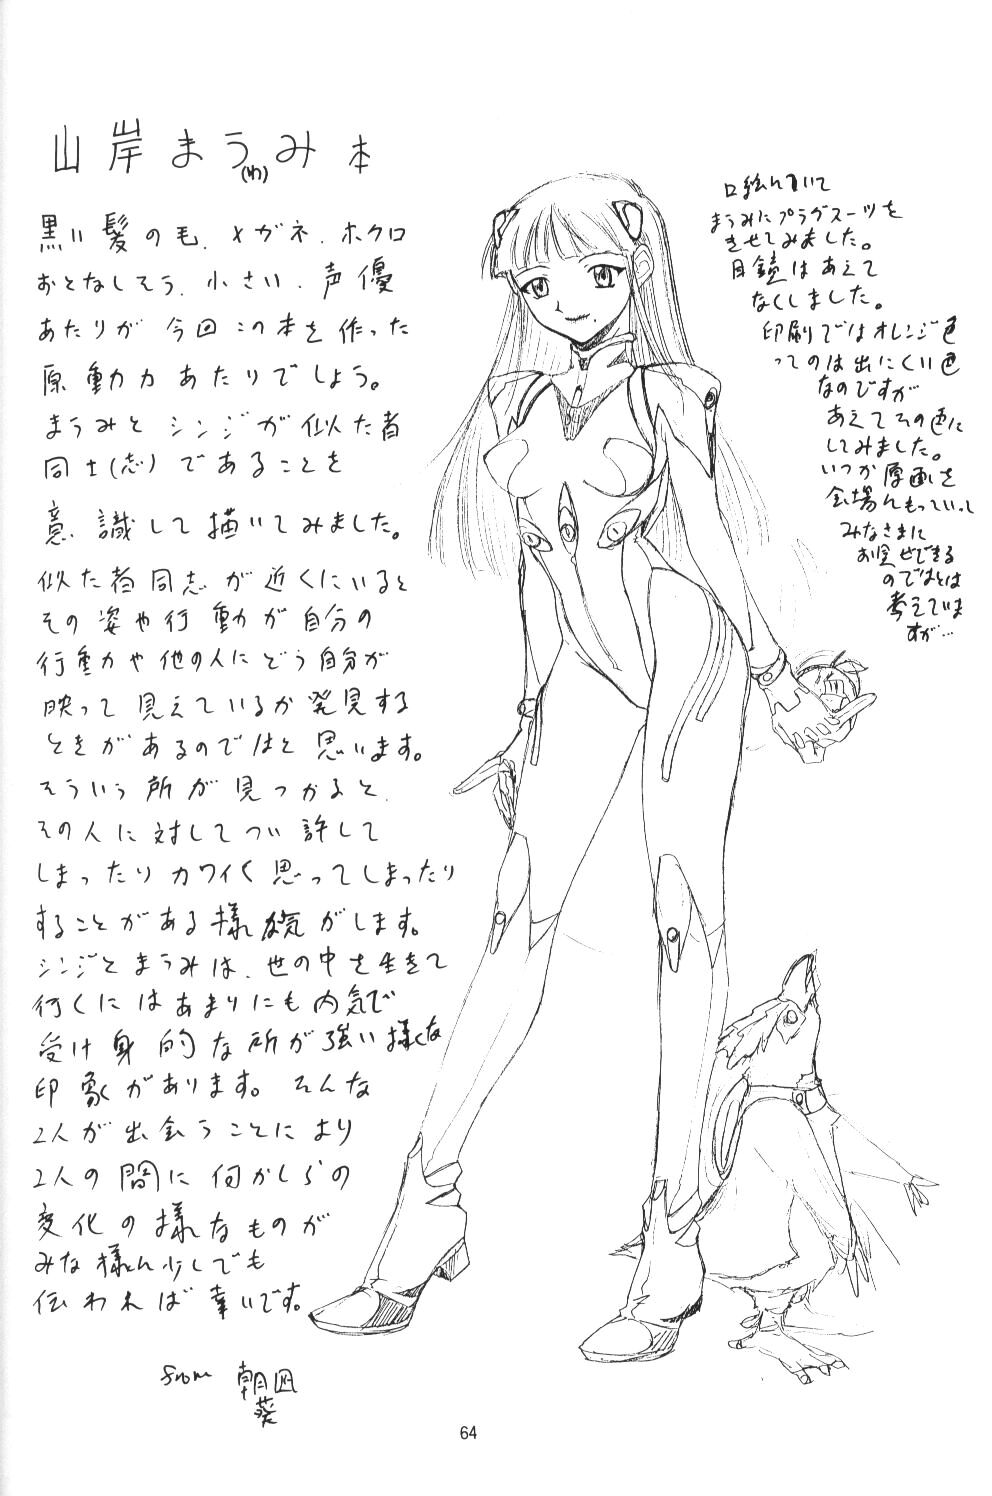 山岸まうみ本
(ゆ)
黒い髪の毛、メガネ、ホクロ
おとなしそう、小さい、声優
あたりが今回この本を作った
原動力あたりでしょう。
まうみとシンジが似た者
同士(志)であることを
意識して描いてみました。
似た者同志が近くにいると
その姿や行動が自分の
行動や他の人にどう自分が
映って見えているか発見する
ときがあるのではと思います。
そういう所が見つかると、
その人に対してつい許して
しまったりカワイく思ってしまったり
することがある様な気がします。
シンジとまうみは、世の中を生きて
行くにはあまりにも内気で
受け身的な所が強い様な
印象があります。そんな
2人が出会うことにより
2人の間に何かしらの
変化の様なものが
みな様に少しでも
伝われば幸いです。
from 朝凪
葵
口絵について
まうみにプラグスーツを
きせてみました。
目鏡はあえて
なくしました。
印刷ではオレンジ色
ってのは出にくい色
なのですが
あえてその色に
してみました。
いつか原画を
会場にもっていって
みなさまに
お見せできる
のではとは
考えていま
すが…
64